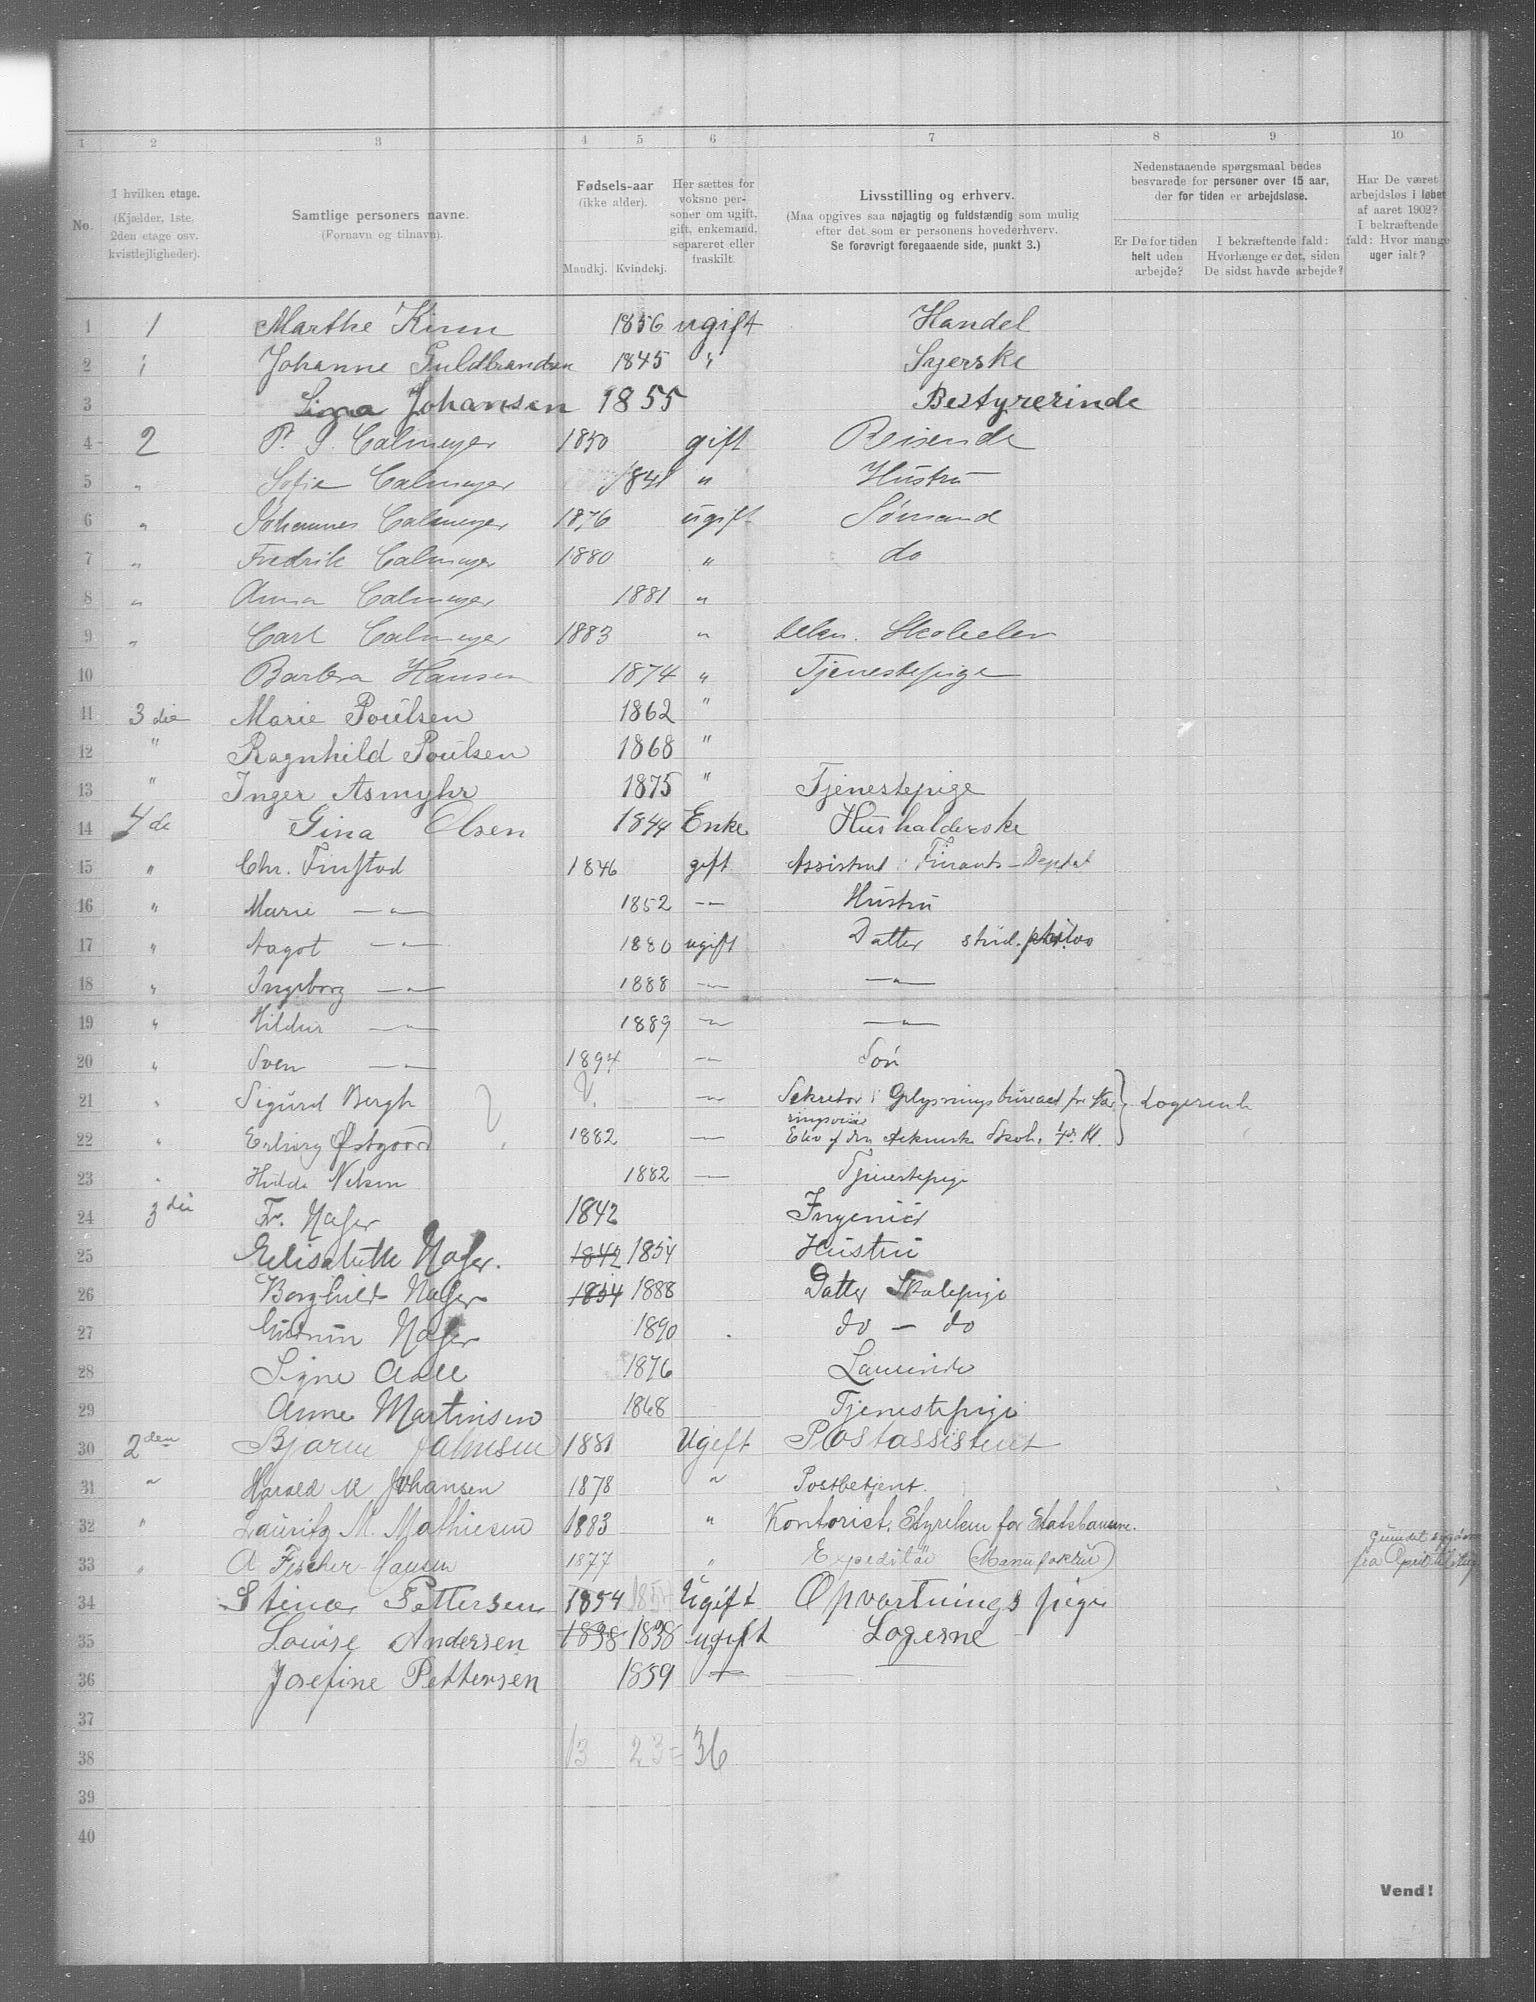 1 2 3 4 5 6 7 8 9 10
No.
I hvilken etage.
(Kjælder, 1ste,
2den etage osv.
kvistlejligheder).
Samtlige personers navne.
(Fornavn og tilnavn).
Fødsels-aar
(ikke alder).
Mandkj. Kvindekj.
Her sættes for
voksne per-
soner om ugift,
gift, enkemand,
separeret eller
fraskilt.
Livsstilling og erhverv.
(Maa opgives saa nøjagtig og fuldstændig som mulig
efter det som er personens hovederhverv.
Se forøvrigt foregaaende side, punkt 3.)
Nedenstaaende spørgsmaal bedes
besvarede for personer over 15 aar,
der for tiden er arbejdsløse.
Er De for tiden
helt uden
arbejde?
I bekræftende fald:
Hvorlænge er det, siden
De sidst havde arbejde?
Har De været
arbejdsløs i løbet
af aaret 1902?
I bekræftende
fald: Hvor mange
uger ialt?
1 1 Marthe 1856 ugift Handel
2 1 Johanne Guldbrandsen 1845 " Syerske
3 Johansen 1855 Bestyrerinde
4 2 P. Calmeyer 1850 gift Reisende
5 " Sofie Calmeyer 1841 " Hustru
6 " Johannes Calmeyer 1876 ugift Sømand
7 " Fredrik Calmeyer 1880 " do
8 " Anna Calmeyer 1881 "
9 " Carl Calmeyer 1883 " Skoleelev
10 Barbra Hansen 1874 " Tjenestepige
11 3die Marie Poulsen 1862 "
12 " Ragnhild Poulsen 1868 "
13 " Inger Asmyhr 1875 " Tjenestepige
14 4de Gina Olsen 1844 Enke Husholderske
15 " Chr. Finstad 1846 gift Assistent i Finants-Deptet
16 " Marie —"— 1852 —"— Hustru
17 " Aagot —"— 1880 ugift Datter stud. philos
18 " Ingeborg —"— 1888 —"— —"—
19 " Hildur —"— 1889 —"— —"—
20 " Sven —"— 1894 —"— Søn
21 " Sigurd Bergh —"— Sekretær i Oplysningsbureaet for Næ
ringsveie
Logerende
22 " Erling Østgaard 1882 —"— Elev af den tekniske Skole, 4de Kl.
23 " Hilda Nilsen 1882 —"— Tjenestepige
24 3die Fr. 1842 Ingeniør
25 Elisabeth 1842 1854 Hustru
26 Borghild 1854 1888 Datter Skolepige
27 Gudrun 1890 do — do
28 Signe Aall 1876 Lærerinde
29 Anne Martinsen 1868 Tjenestepige
30 2den Bjarne 1881 Ugift Postassistent
31 " Harald K Johansen 1878 " Postbetjent.
32 " Lauritz M. Mathiesen 1883 " Kontorist, Styrelsen for Statsbanerne.
33 " A Fischer-Hansen 1877 " Expeditør (Manufaktur) fra April til
34 Stina Pettersen 1854 1854 Ugift Opvartningspige
35 Louise Andersen 1838 1838 ugift Logerne
36 Josefine Pettersen 1859 —"—
37
38 13 23 = 36
39
40
Vend!